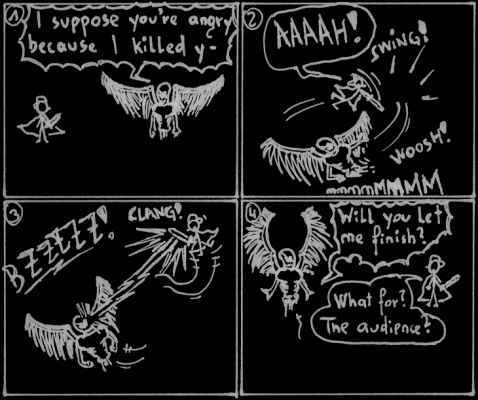 1
I suppose you're angry
because I killed y-
2
AAAAH!
SWING!
WOOSH!
mmmmMMMMM
3
BZZZZZ!
CLANG!
4
Will you let
me finish?
What for?
The audience?